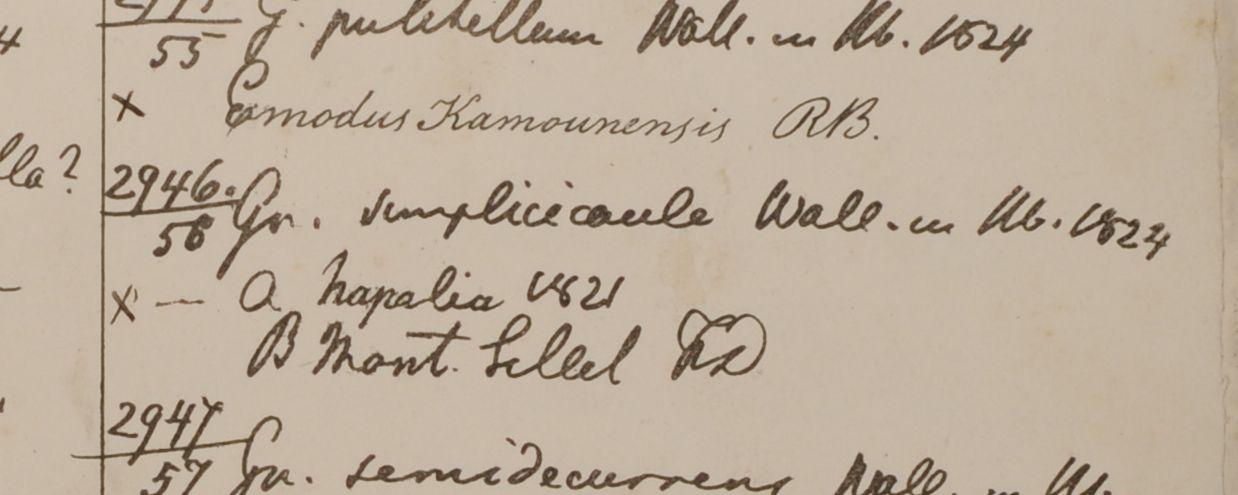 4
55 G. pulchellum Wall. in Hb. 1824
× Emodus Kamounensis RB.
lla?
2946.
56 Gn. simplicicaule Wall. in Hb. 1824
× — a Napalia 1821
B Mont. Sillet
2947
57 Gn. semidecurrens Wall. in Hb.